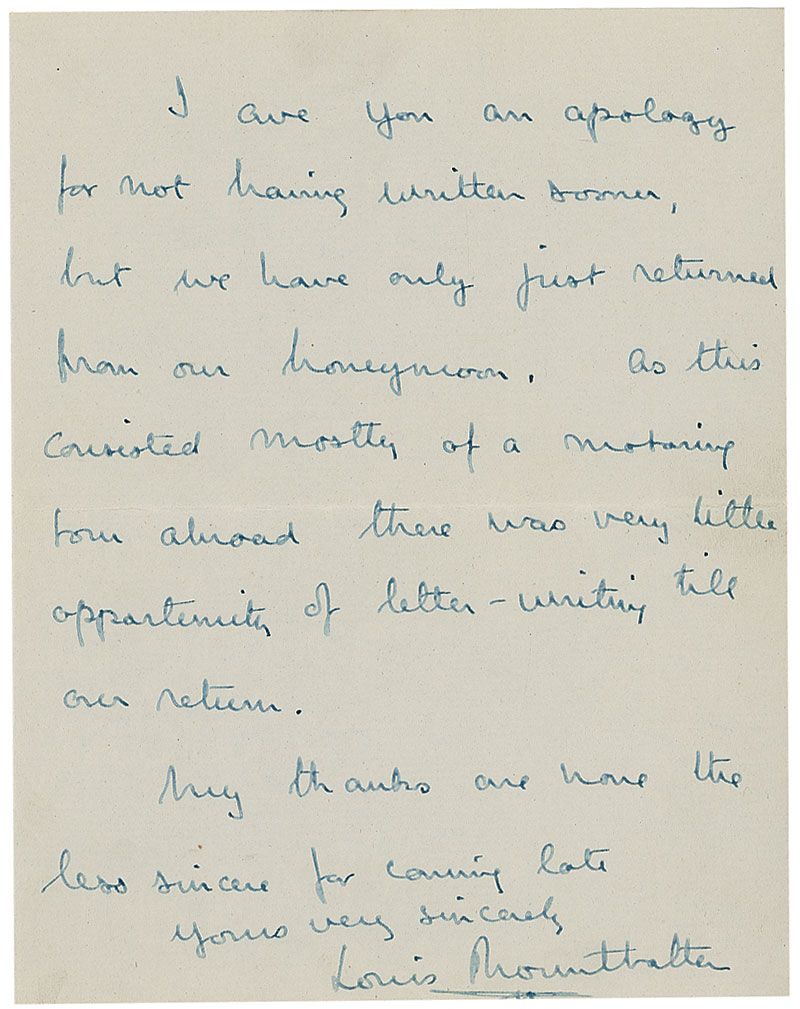 I owe you an apology
for not having written sooner,
but we have only just returned
from our honeymoon. As this
consisted mostly of a motoring
tour abroad there was very little
opportunity of letter-writing till
our return.
My thanks are none the
less sincere for coming late
Yours very sincerely
Louis Mountbatten